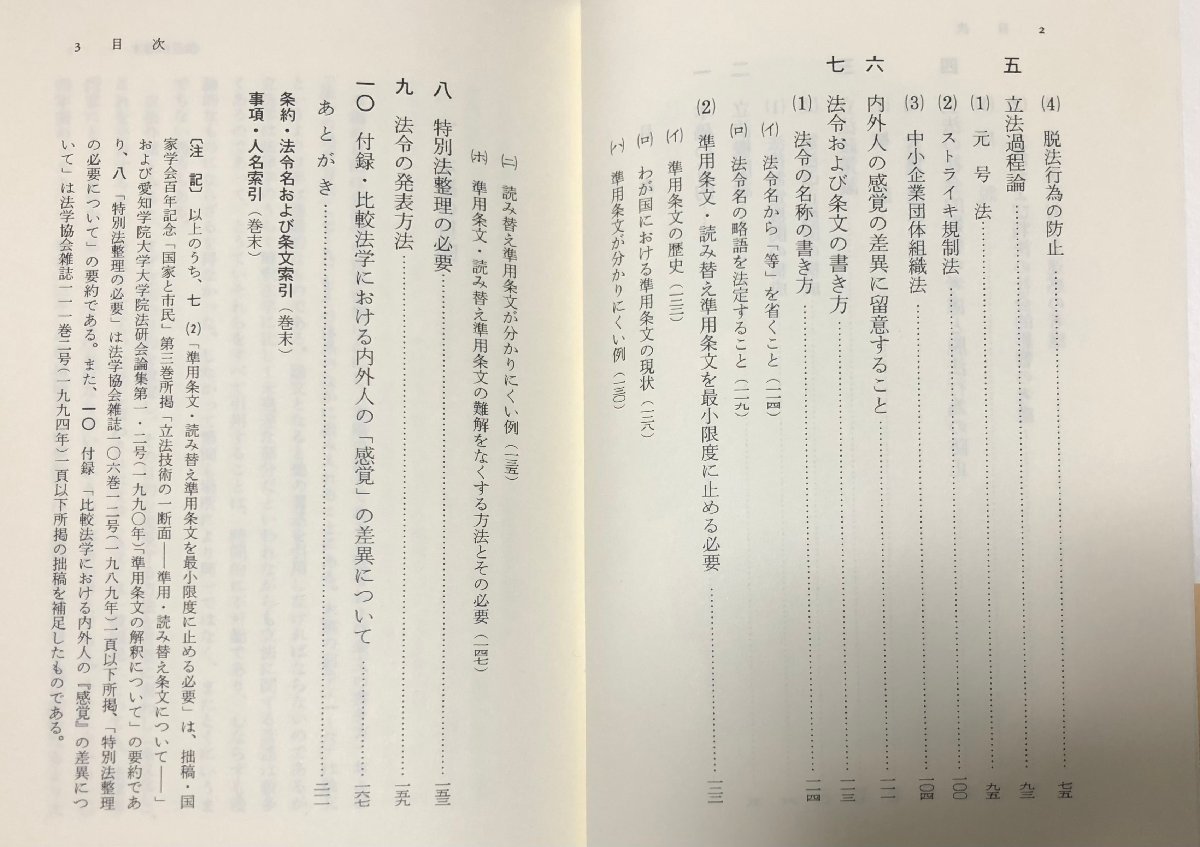 2
(4) 脱法行為の防止……七五
五 立法過程論……九三
(1) 元号法……九五
(2) ストライキ規制法……一〇〇
(3) 中小企業団体組織法……一〇四
六 内外人の感覚の差異に留意すること……一一一
七 法令および条文の書き方……一一三
(1) 法令の名称の書き方……一一四
(イ) 法令名から「等」を省くこと(一一四)
(ロ) 法令名の略語を法定すること(一一九)
(2) 準用条文・読み替え準用条文を最小限度に止める必要……一二二
(イ) 準用条文の歴史(一二三)
(ロ) わが国における準用条文の現状(一二六)
(ハ) 準用条文が分かりにくい例(一三〇)
3 目次
(ニ) 読み替え準用条文が分かりにくい例(一三五)
(ホ) 準用条文・読み替え準用条文の難解をなくする方法とその必要(一四七)
八 特別法整理の必要……一五三
九 法令の発表方法……一五九
一〇 付録・比較法学における内外人の「感覚」の差異について……一六七
あとがき……二一一
条約・法令名および条文索引(巻末)
事項・人名索引(巻末)
〔注記〕 以上のうち、七 (2)「準用条文・読み替え準用条文を最小限度に止める必要」は、拙稿・国
家学会百年記念「国家と市民」第三巻所掲「立法技術の一断面――準用・読み替え条文について――」
および愛知学院大学大学院法研会論集第一・二号(一九九〇年)「準用条文の解釈について」の要約であ
り、八「特別法整理の必要」は法学協会雑誌一〇六巻一二号(一九八九年)一頁以下所掲、「特別法整理
の必要について」の要約である。また、一〇 付録 「比較法学における内外人の『感覚』の差異につ
いて」は法学協会雑誌一一一巻二号(一九九四年)一頁以下所掲の拙稿を補足したものである。